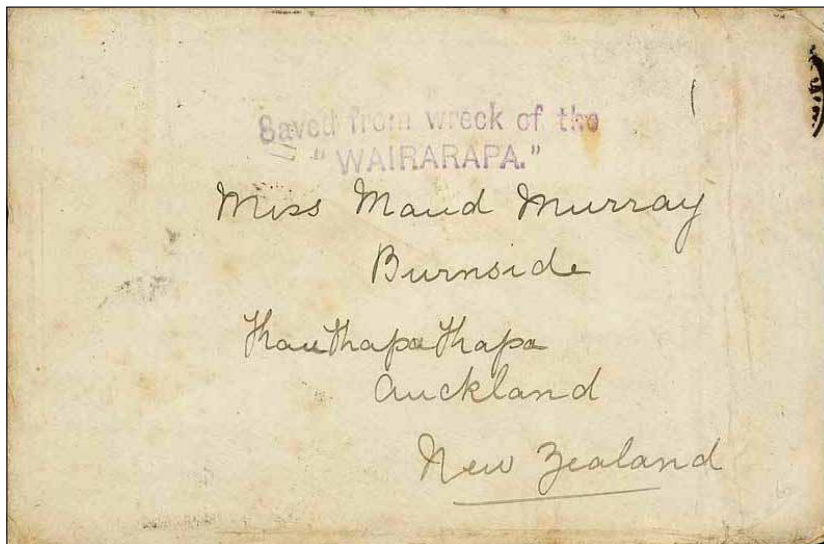 Saved from wreck of the
"WAIRARAPA."
Miss Maud Murray
Burnside
Auckland
New Zealand